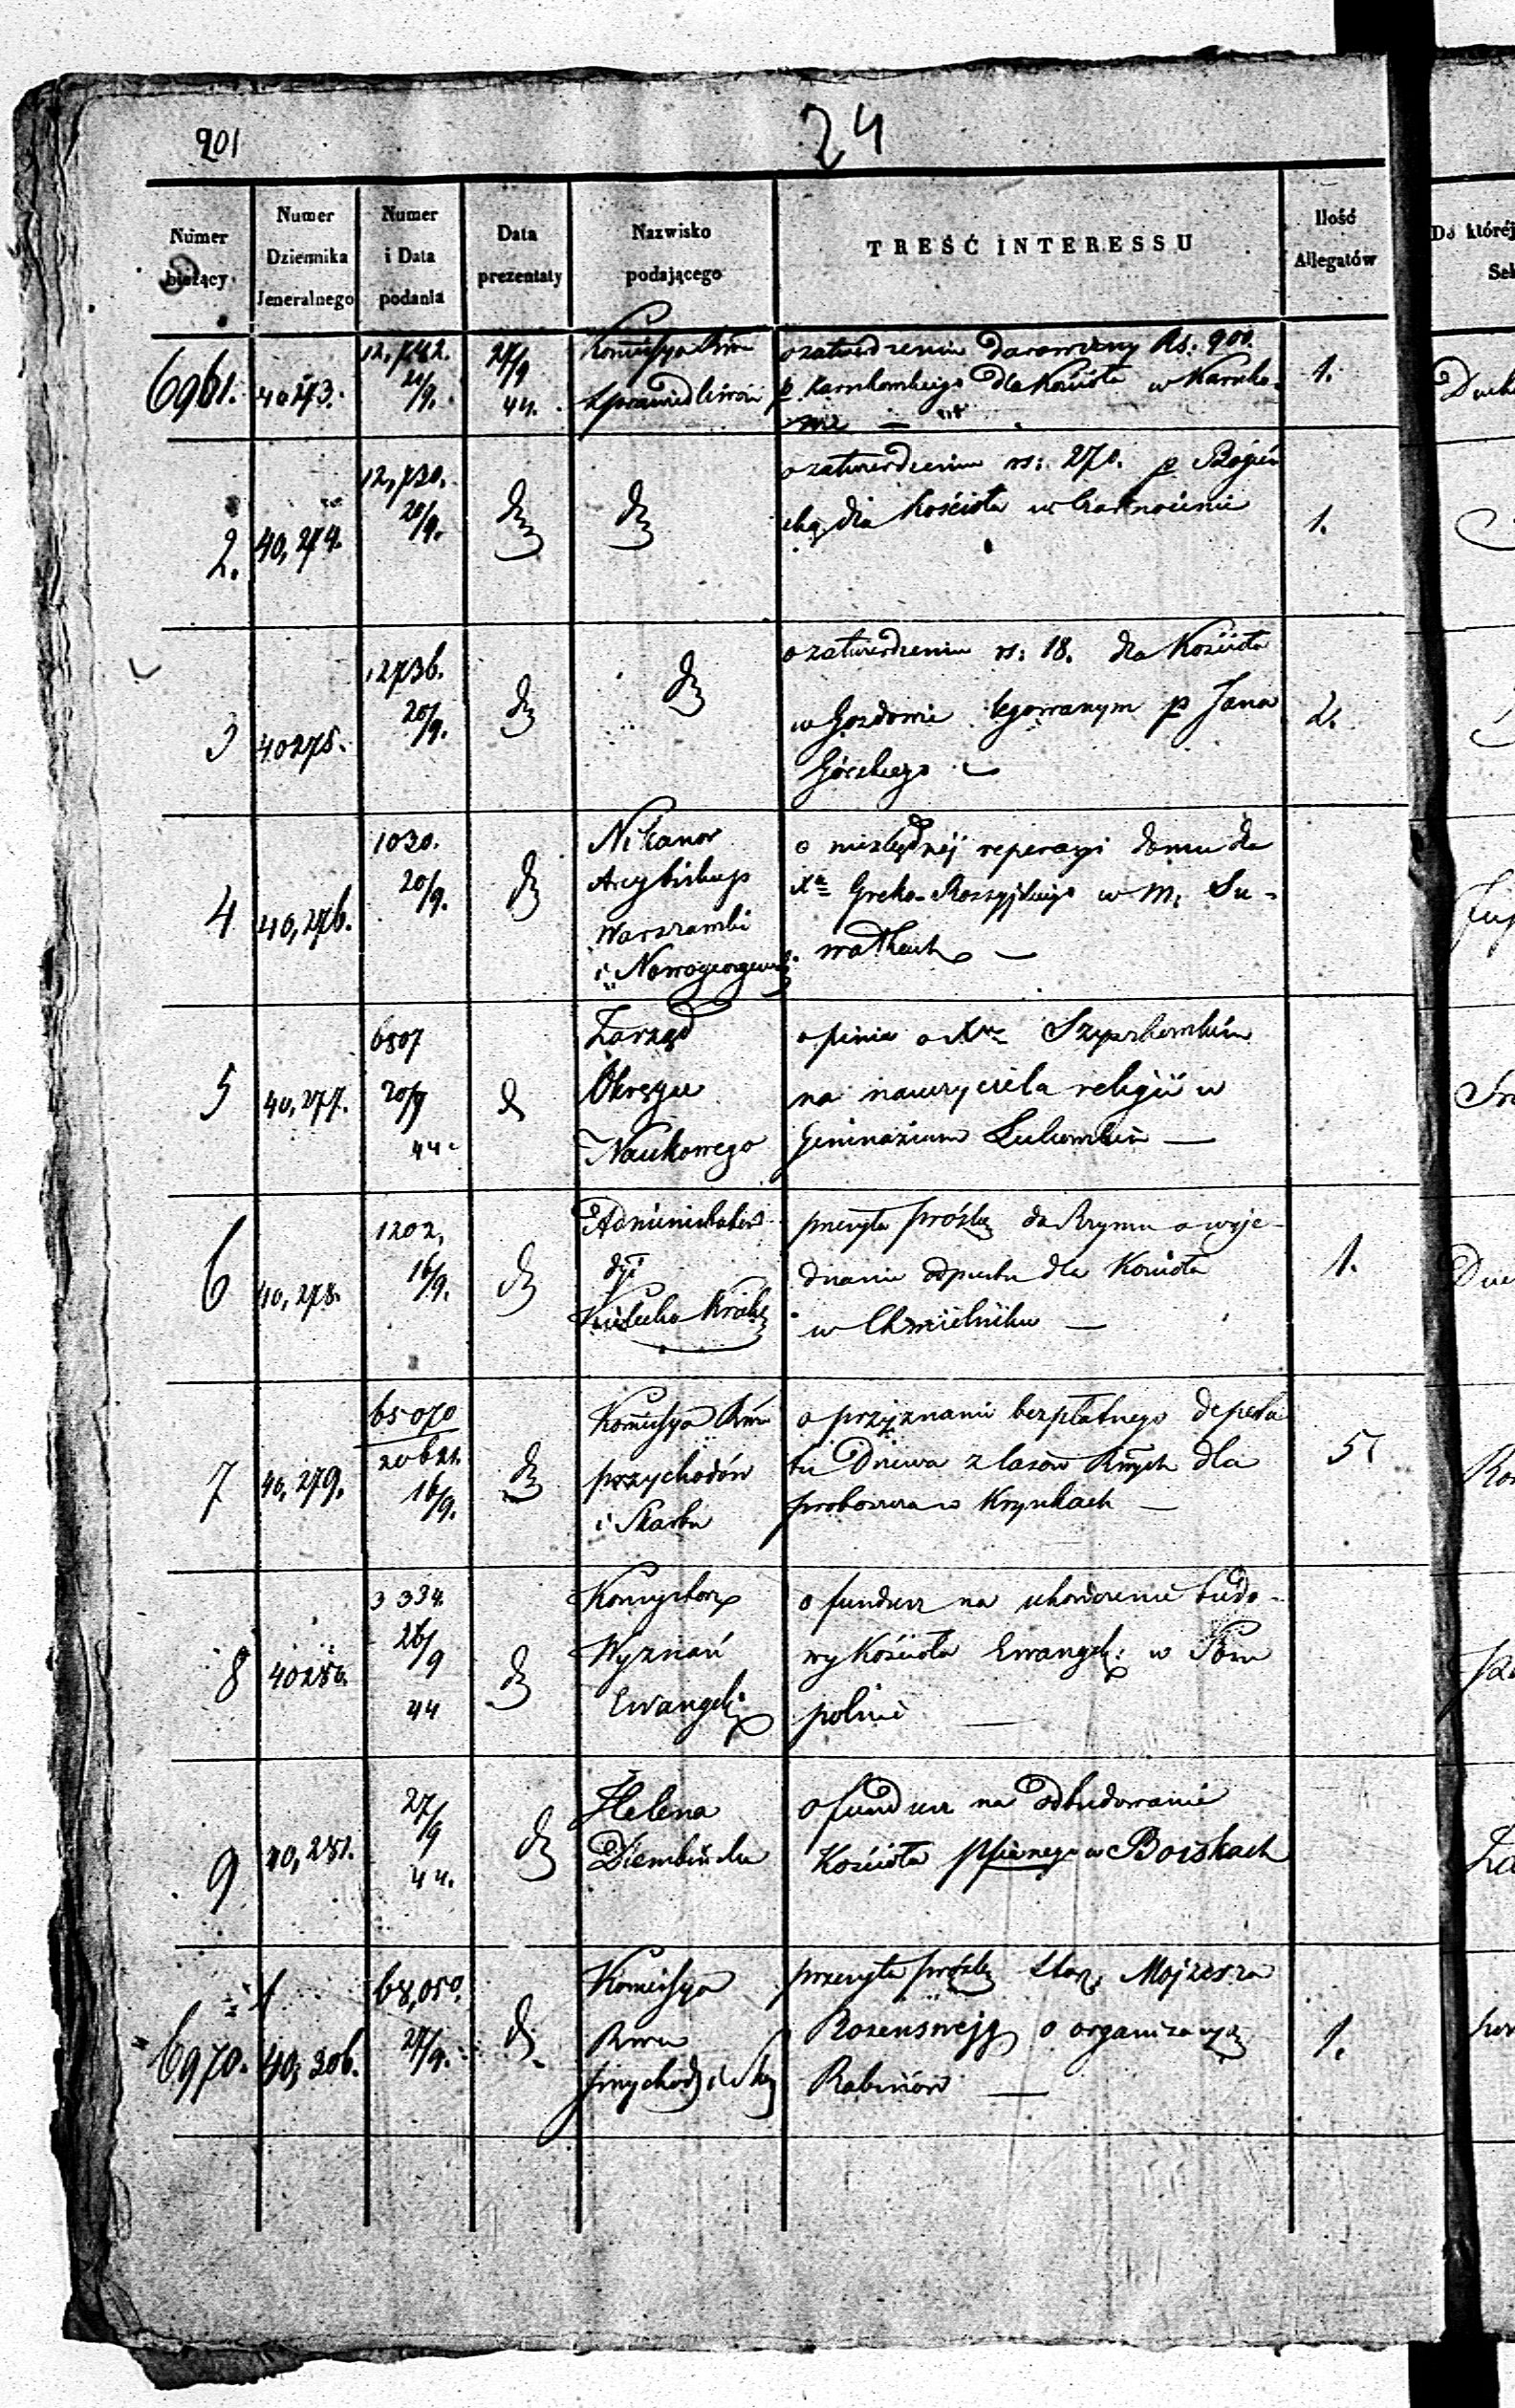 201
24
Numer bieżący
Numer Dziennika Jeneralnego
Numer i Data podania
Data prezentaty
Nazwisko podającego
TREŚĆ INTERESSU
Ilość Allegatów
Do której
6961. 40273. 12,742. 20/9. 27/9 44.
Kommissya
Sprawiedliwości
o zatwierdzeniu darowizny Rs: 900.
p Karnkowskiego dla Kościoła w Karnko-
wie —
1.
2. 40,274. 12,730. 20/9.
o zatwierdzeniu rs: 270. p
dla Kościoła w Czarnocinie
1.
3 40275. 12736. 20/9.
o zatwierdzeniu rs: 18. dla Kościoła
w Gozdowie legowanym p Jana
Górskiego —
2.
4 40,276. 1030. 20/9.
Nikanor
Arcybiskup
Warszawski
i Nowogeorgiewski
o niezbędnéj reperacyi domu dla
Xa Greko-Rossyjskiego w M. Su-
wałkach —
5 40,277. 6807 20/9 44
Zarząd
Okręgu
Naukowego
opinia o Xu
na nauczyciela religii w
Gimnazium —
6 40,278. 1202, 16/9.
Administrator
dyi
Kielecko Krak
przesyła prośbę do Rzymu o wyje-
dnanie odpustu dla Kościoła
w Chmielniku —
1.
7 40,279. 65070 20621. 16/9.
Kommissya
przychodów
i Skarbu
o przyznanie bezpłatnego deputa
tu Drzewa z lasów dla
proboszcza w Krynkach —
5
8 40280. 3334. 26/9 44
Konsystorz
Wyznań
Ewangeli:
o fundusz na ukończenie budo-
wy Kościoła Ewangeli: w Som
polnie —
9 40,281. 27/9 44.
Helena
Dembińska
o fundusz na odbudowanie
Kościoła w Boiskach
6970. 40,306. 68,050. 27/9.
Kommissya
przychod: i
przesyła prośbę Star: Mojżesza
Rosensweig o organizacyą
Rabinów —
1.